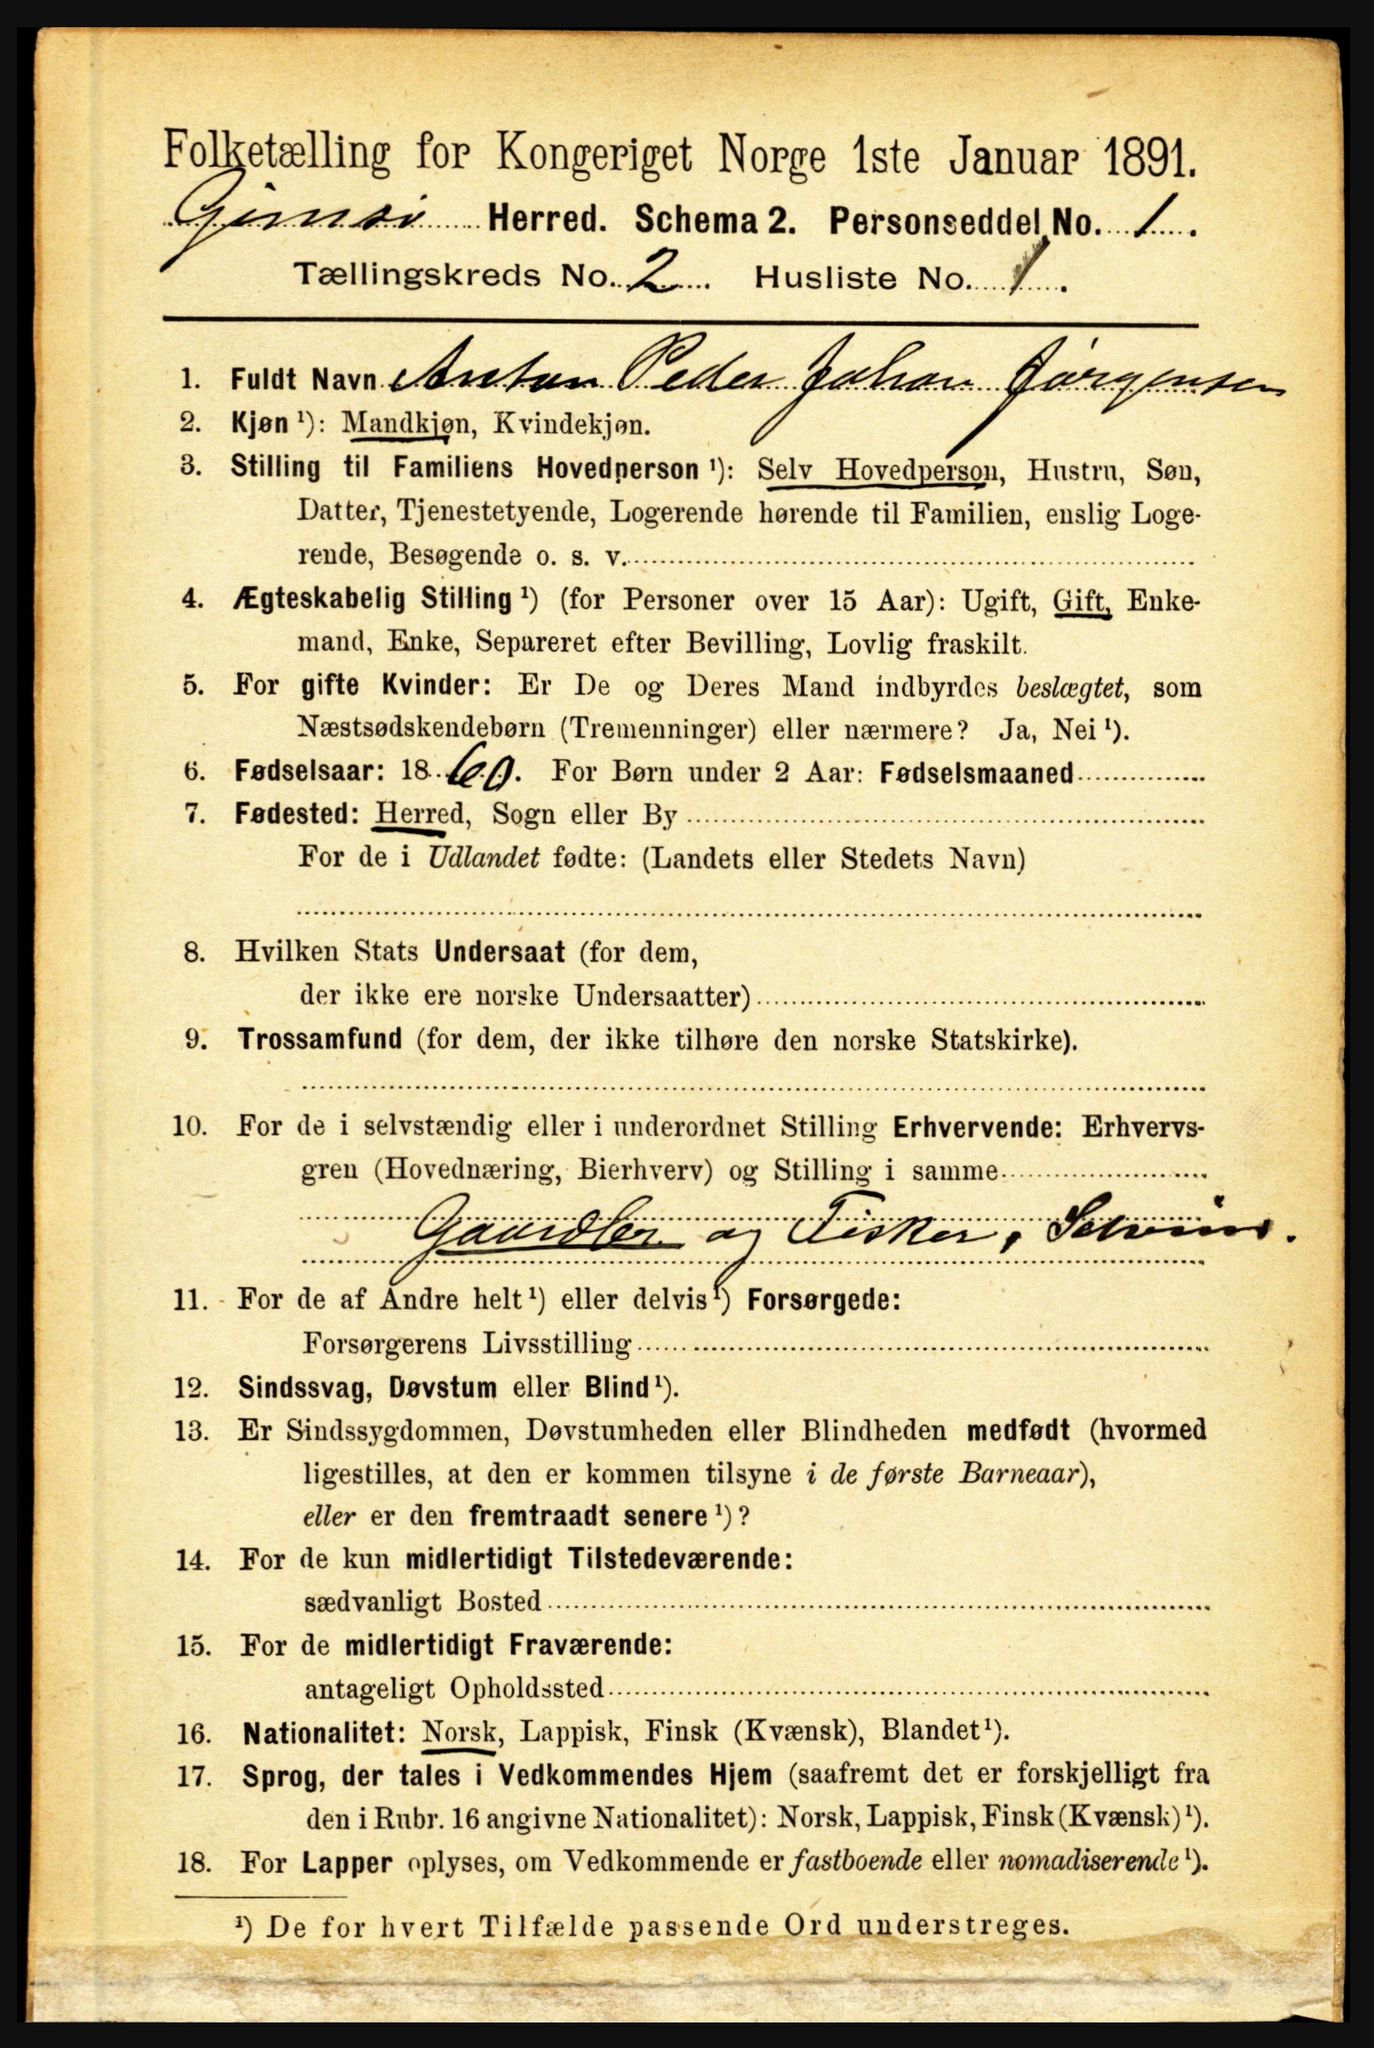 Folketælling for Kongeriget Norge 1ste Januar 1891.
Gimsø Herred. Schema 2. Personseddel No. 1.
Tællingskreds No. 2. Husliste No. 1.
1. Fuldt Navn Anton Peder Johan Jørgensen
2. Kjøn¹): Mandkjøn, Kvindekjøn.
3. Stilling til Familiens Hovedperson¹): Selv Hovedperson, Hustru, Søn,
Datter, Tjenestetyende, Logerende hørende til Familien, enslig Loge-
rende, Besøgende o. s. v.
4. Ægteskabelig Stilling¹) (for Personer over 15 Aar): Ugift, Gift, Enke-
mand, Enke, Separeret efter Bevilling, Lovlig fraskilt.
5. For gifte Kvinder: Er De og Deres Mand indbyrdes beslægtet, som
Næstsødskendebørn (Tremenninger) eller nærmere? Ja, Nei¹).
6. Fødselsaar: 1860. For Børn under 2 Aar: Fødselsmaaned
7. Fødested: Herred, Sogn eller By
For de i Udlandet fødte: (Landets eller Stedets Navn)
8. Hvilken Stats Undersaat (for dem,
der ikke ere norske Undersaatter)
9. Trossamfund (for dem, der ikke tilhøre den norske Statskirke).
10. For de i selvstændig eller i underordnet Stilling Erhvervende: Erhvervs-
gren (Hovednæring, Bierhverv) og Stilling i samme
og Fisker,
11. For de af Andre helt¹) eller delvis¹) Forsørgede:
Forsørgerens Livsstilling
12. Sindssvag, Døvstum eller Blind¹).
13. Er Sindssygdommen, Døvstumheden eller Blindheden medfødt (hvormed
ligestilles, at den er kommen tilsyne i de første Barneaar),
eller er den fremtraadt senere¹)?
14. For de kun midlertidigt Tilstedeværende:
sædvanligt Bosted
15. For de midlertidigt Fraværende:
antageligt Opholdssted
16. Nationalitet: Norsk, Lappisk, Finsk (Kvænsk), Blandet¹).
17. Sprog, der tales i Vedkommendes Hjem (saafremt det er forskjelligt fra
den i Rubr. 16 angivne Nationalitet): Norsk, Lappisk, Finsk (Kvænsk)¹).
18. For Lapper oplyses, om Vedkommende er fastboende eller nomadiserende¹).
¹) De for hvert Tilfælde passende Ord understreges.